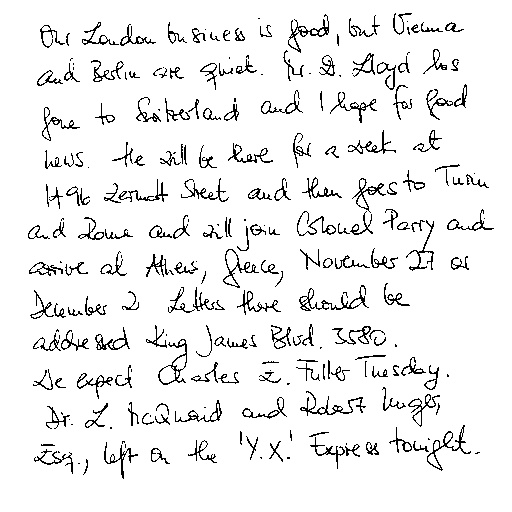 Our London business is good, but Vienna
and Berlin are quiet. Mr. D. Lloyd has
gone to Switzerland and I hope for good
news. He will be there for a week at
1496 Zermott Street and then goes to Turin
and Rome and will join Colonel Parry and
arrive at Athens, Greece, November 27 or
December 2. Letters there should be
addressed King James Blvd. 3580.
We expect Charles E. Fuller Tuesday.
Dr. L. McQuaid and Robert Unger,
Esq., left on the 'Y.X.' Express tonight.